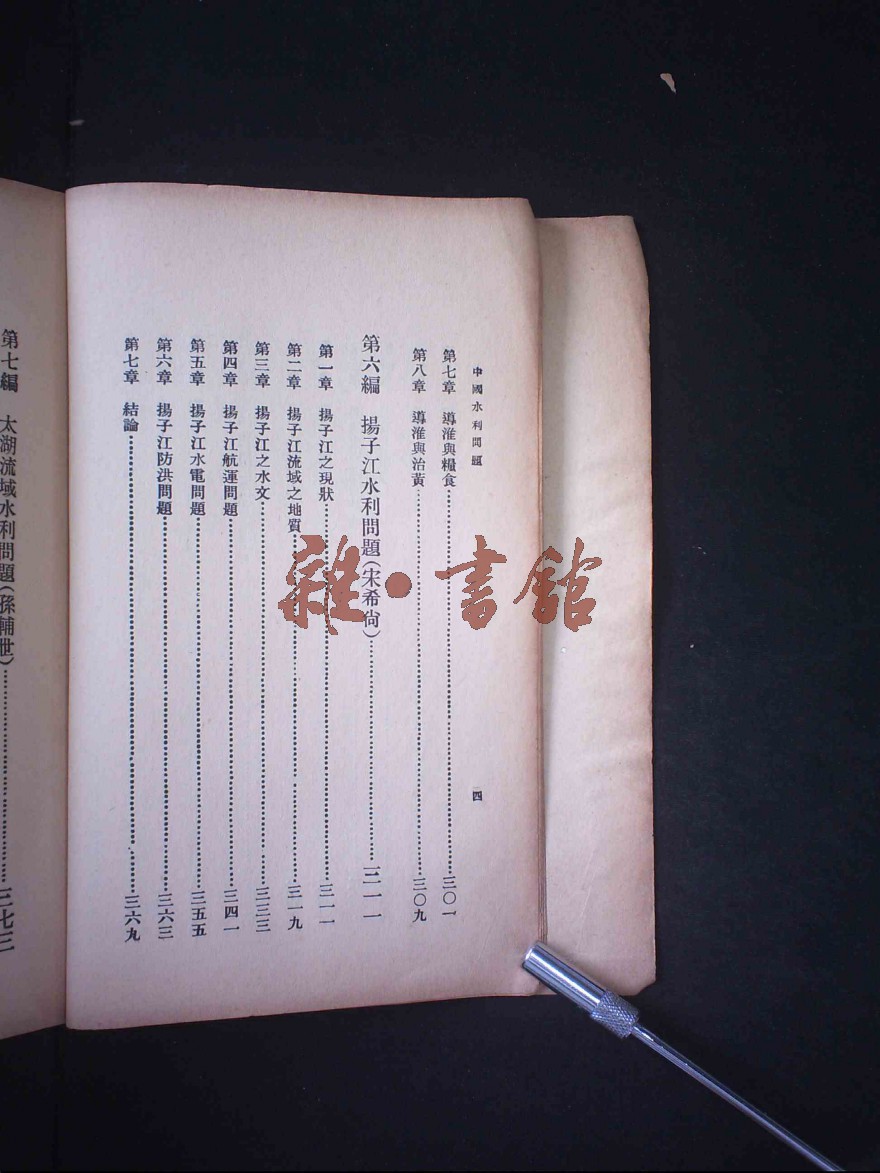 中國水利問題
四
第七章 導淮與糧食……三〇一
第八章 導淮與治黃……三〇九
第六編 揚子江水利問題(宋希尙)……三一一
第一章 揚子江之現狀……三一一
第二章 揚子江流域之地質……三一九
第三章 揚子江之水文……三三三
第四章 揚子江航運問題……三四一
第五章 揚子江水電問題……三五五
第六章 揚子江防洪問題……三六三
第七章 結論……三六九
第七編 太湖流域水利問題(孫輔世)……三七三
雜·書館